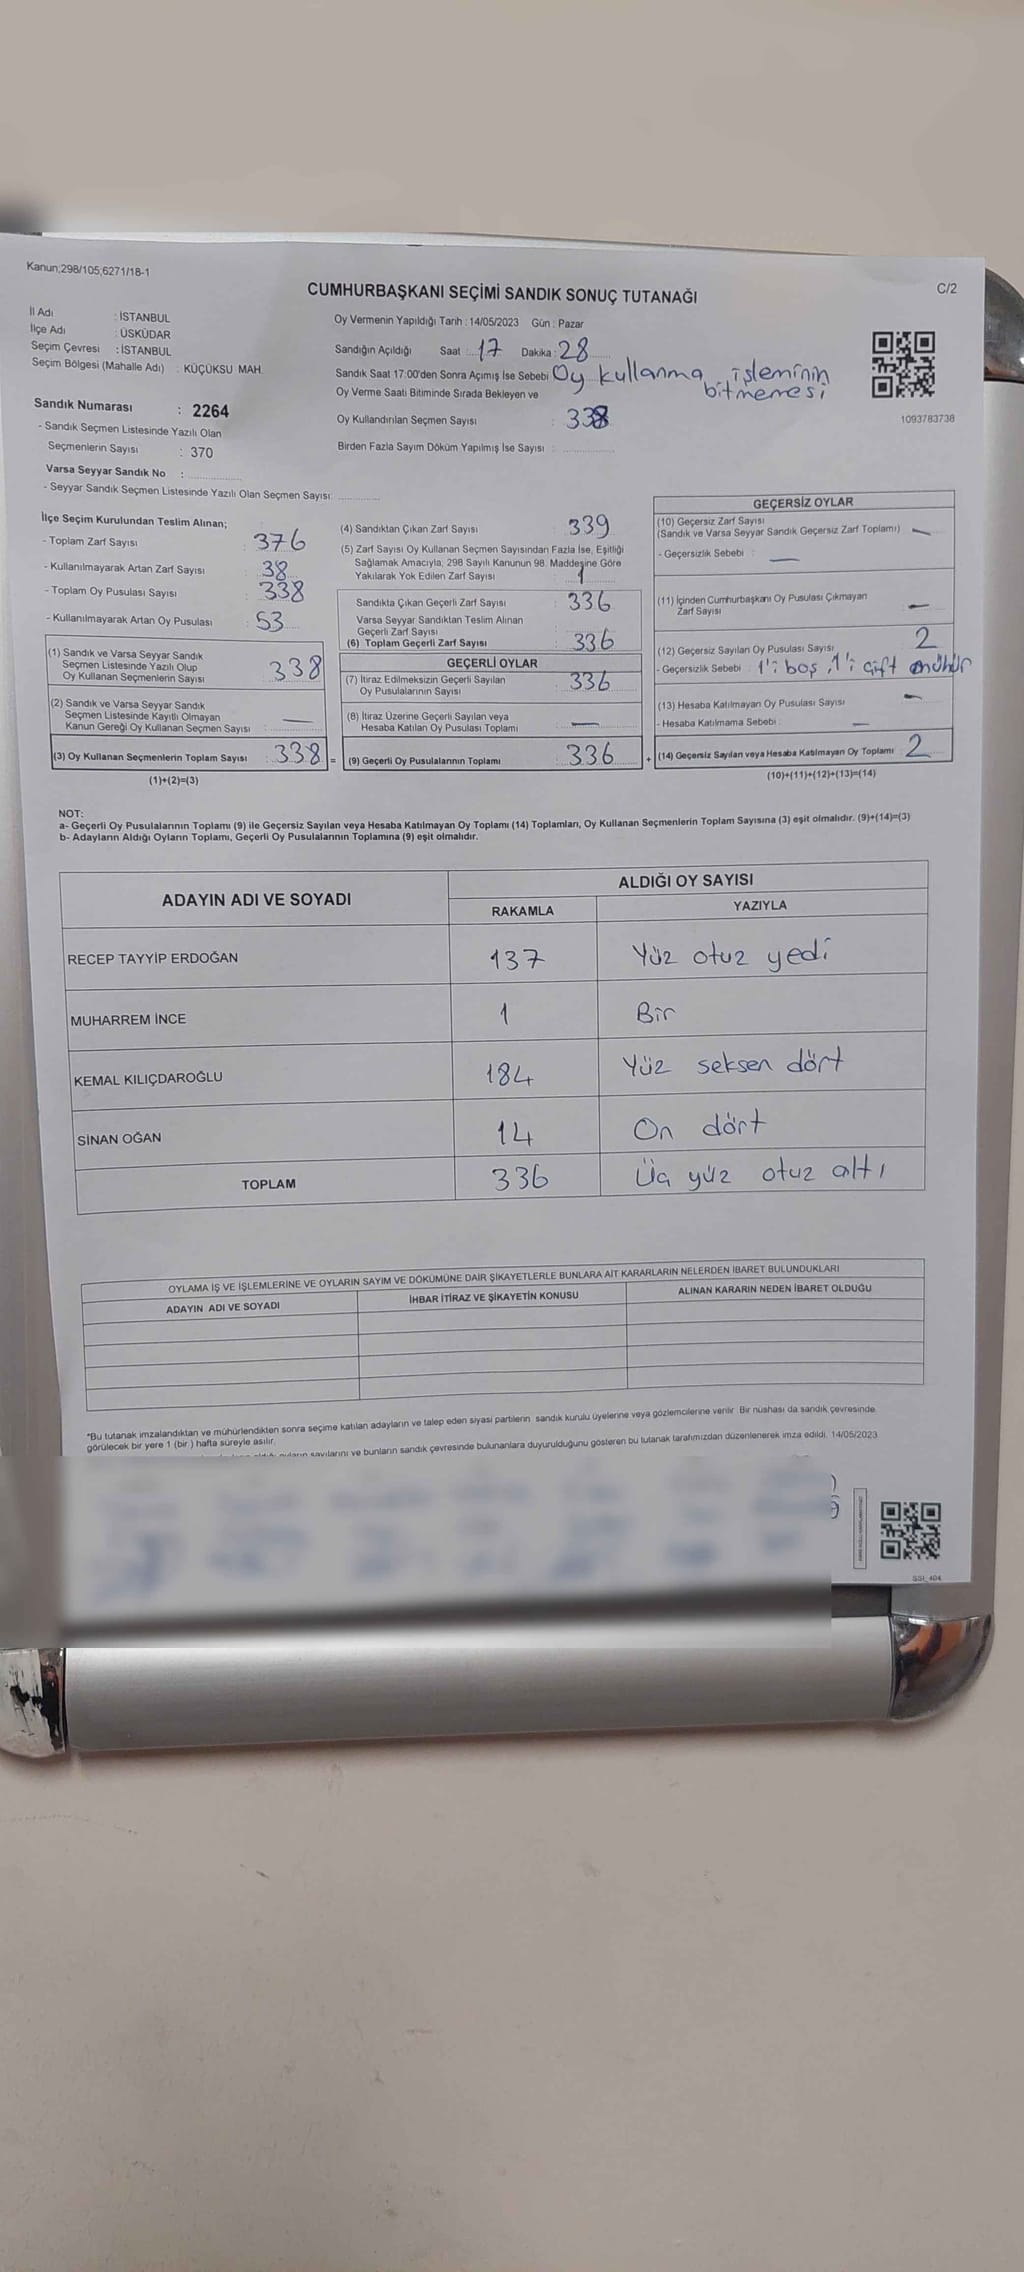 Kanun;298/105;6271/18-1
C/2
CUMHURBAŞKANI SEÇİMİ SANDIK SONUÇ TUTANAĞI
İl Adı : İSTANBUL
İlçe Adı : ÜSKÜDAR
Seçim Çevresi : İSTANBUL
Seçim Bölgesi (Mahalle Adı) : KÜÇÜKSU MAH.
Oy Vermenin Yapıldığı Tarih : 14/05/2023 Gün : Pazar
Sandığın Açıldığı Saat : 17 Dakika : 28
Sandık Saat 17:00'den Sonra Açımış İse Sebebi Oy kullanma işleminin bitmemesi
Oy Verme Saati Bitiminde Sırada Bekleyen ve
Oy Kullandırılan Seçmen Sayısı : 338
Birden Fazla Sayım Döküm Yapılmış İse Sayısı :
1093783738
Sandık Numarası : 2264
- Sandık Seçmen Listesinde Yazılı Olan
Seçmenlerin Sayısı : 370
Varsa Seyyar Sandık No :
- Seyyar Sandık Seçmen Listesinde Yazılı Olan Seçmen Sayısı:
İlçe Seçim Kurulundan Teslim Alınan;
- Toplam Zarf Sayısı : 376
- Kullanılmayarak Artan Zarf Sayısı : 38
- Toplam Oy Pusulası Sayısı : 338
- Kullanılmayarak Artan Oy Pusulası : 53
(1) Sandık ve Varsa Seyyar Sandık
Seçmen Listesinde Yazılı Olup
Oy Kullanan Seçmenlerin Sayısı : 338
(2) Sandık ve Varsa Seyyar Sandık
Seçmen Listesinde Kayıtlı Olmayan
Kanun Gereği Oy Kullanan Seçmen Sayısı : —
(3) Oy Kullanan Seçmenlerin Toplam Sayısı : 338 =
(1)+(2)=(3)
(4) Sandıktan Çıkan Zarf Sayısı : 339
(5) Zarf Sayısı Oy Kullanan Seçmen Sayısından Fazla İse, Eşitliği
Sağlamak Amacıyla; 298 Sayılı Kanunun 98. Maddesine Göre
Yakılarak Yok Edilen Zarf Sayısı : 1
Sandıkta Çıkan Geçerli Zarf Sayısı : 336
Varsa Seyyar Sandıktan Teslim Alınan
Geçerli Zarf Sayısı :
(6) Toplam Geçerli Zarf Sayısı : 336
GEÇERLİ OYLAR
(7) İtiraz Edilmeksizin Geçerli Sayılan
Oy Pusulalarının Sayısı : 336
(8) İtiraz Üzerine Geçerli Sayılan veya
Hesaba Katılan Oy Pusulası Toplamı : —
(9) Geçerli Oy Pusulalarının Toplamı : 336 +
GEÇERSİZ OYLAR
(10) Geçersiz Zarf Sayısı
(Sandık ve Varsa Seyyar Sandık Geçersiz Zarf Toplamı) : —
- Geçersizlik Sebebi : —
(11) İçinden Cumhurbaşkanı Oy Pusulası Çıkmayan
Zarf Sayısı : —
(12) Geçersiz Sayılan Oy Pusulası Sayısı : 2
- Geçersizlik Sebebi : 1'i boş, 1'i çift mühür
(13) Hesaba Katılmayan Oy Pusulası Sayısı : —
- Hesaba Katılmama Sebebi : —
(14) Geçersiz Sayılan veya Hesaba Katılmayan Oy Toplamı : 2
(10)+(11)+(12)+(13)=(14)
NOT:
a- Geçerli Oy Pusulalarının Toplamı (9) ile Geçersiz Sayılan veya Hesaba Katılmayan Oy Toplamı (14) Toplamları, Oy Kullanan Seçmenlerin Toplam Sayısına (3) eşit olmalıdır. (9)+(14)=(3)
b- Adayların Aldığı Oyların Toplamı, Geçerli Oy Pusulalarının Toplamına (9) eşit olmalıdır.
ADAYIN ADI VE SOYADI ALDIĞI OY SAYISI
RAKAMLA YAZIYLA
RECEP TAYYİP ERDOĞAN 137 Yüz otuz yedi
MUHARREM İNCE 1 Bir
KEMAL KILIÇDAROĞLU 184 Yüz seksen dört
SİNAN OĞAN 14 On dört
TOPLAM 336 Üç yüz otuz altı
OYLAMA İŞ VE İŞLEMLERİNE VE OYLARIN SAYIM VE DÖKÜMÜNE DAİR ŞİKAYETLERLE BUNLARA AİT KARARLARIN NELERDEN İBARET BULUNDUKLARI
ADAYIN ADI VE SOYADI İHBAR İTİRAZ VE ŞİKAYETİN KONUSU ALINAN KARARIN NEDEN İBARET OLDUĞU
*Bu tutanak imzalandıktan ve mühürlendikten sonra seçime katılan adayların ve talep eden siyasi partilerin sandık kurulu üyelerine veya gözlemcilerine verilir. Bir nüshası da sandık çevresinde
görülecek bir yere 1 (bir ) hafta süreyle asılır.
sayılarını ve bunların sandık çevresinde bulunanlara duyurulduğunu gösteren bu tutanak tarafımızdan düzenlenerek imza edildi. 14/05/2023
SSI_404